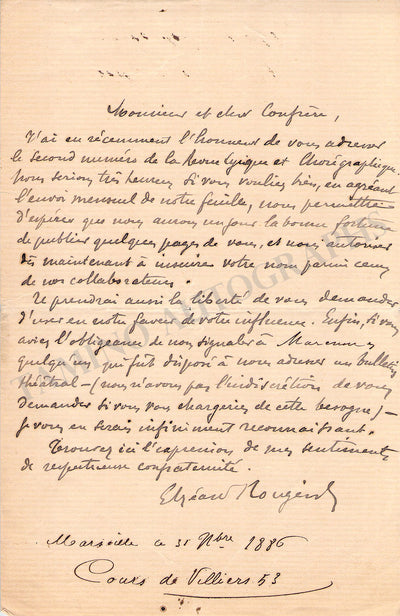 Monsieur et cher Confrère,
J'ai eu récemment l'honneur de vous adresser
le second numéro de la Revue Lyrique et Chorégraphique.
Nous serions très heureux si vous vouliez bien, en agréant
l'envoi mensuel de notre feuille, nous permettre
d'espérer que nous aurons un jour la bonne fortune
de publier quelques pages de vous, et nous autoriser
dès maintenant à inscrire votre nom parmi ceux
de nos collaborateurs.
Je prendrai aussi la liberté de vous demander
d'user en notre faveur de votre influence. Enfin, si vous
aviez l'obligeance de nous signaler à
quelqu'un qui fut disposé à nous adresser un bulletin
théâtral — (nous n'avons pas l'indiscrétion de vous
demander si vous vous chargeriez de cette besogne) —
je vous en serais infiniment reconnaissant.
Trouvez ici l'expression de mes sentiments
de respectueuse confraternité.
Elzéard Rougier
Marseille le 9bre 1886
Cours de Villiers 53
TAMINO AUTOGRAPHS